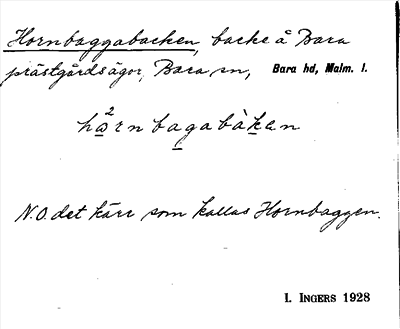 Hornbaggabacken, backe å Bara
prästgårdsägor, Bara sn, Bara hd, Malm. l.
hω²rnbagabàken
N.O. det kärr som kallas Hornbaggen.
I. INGERS 1928